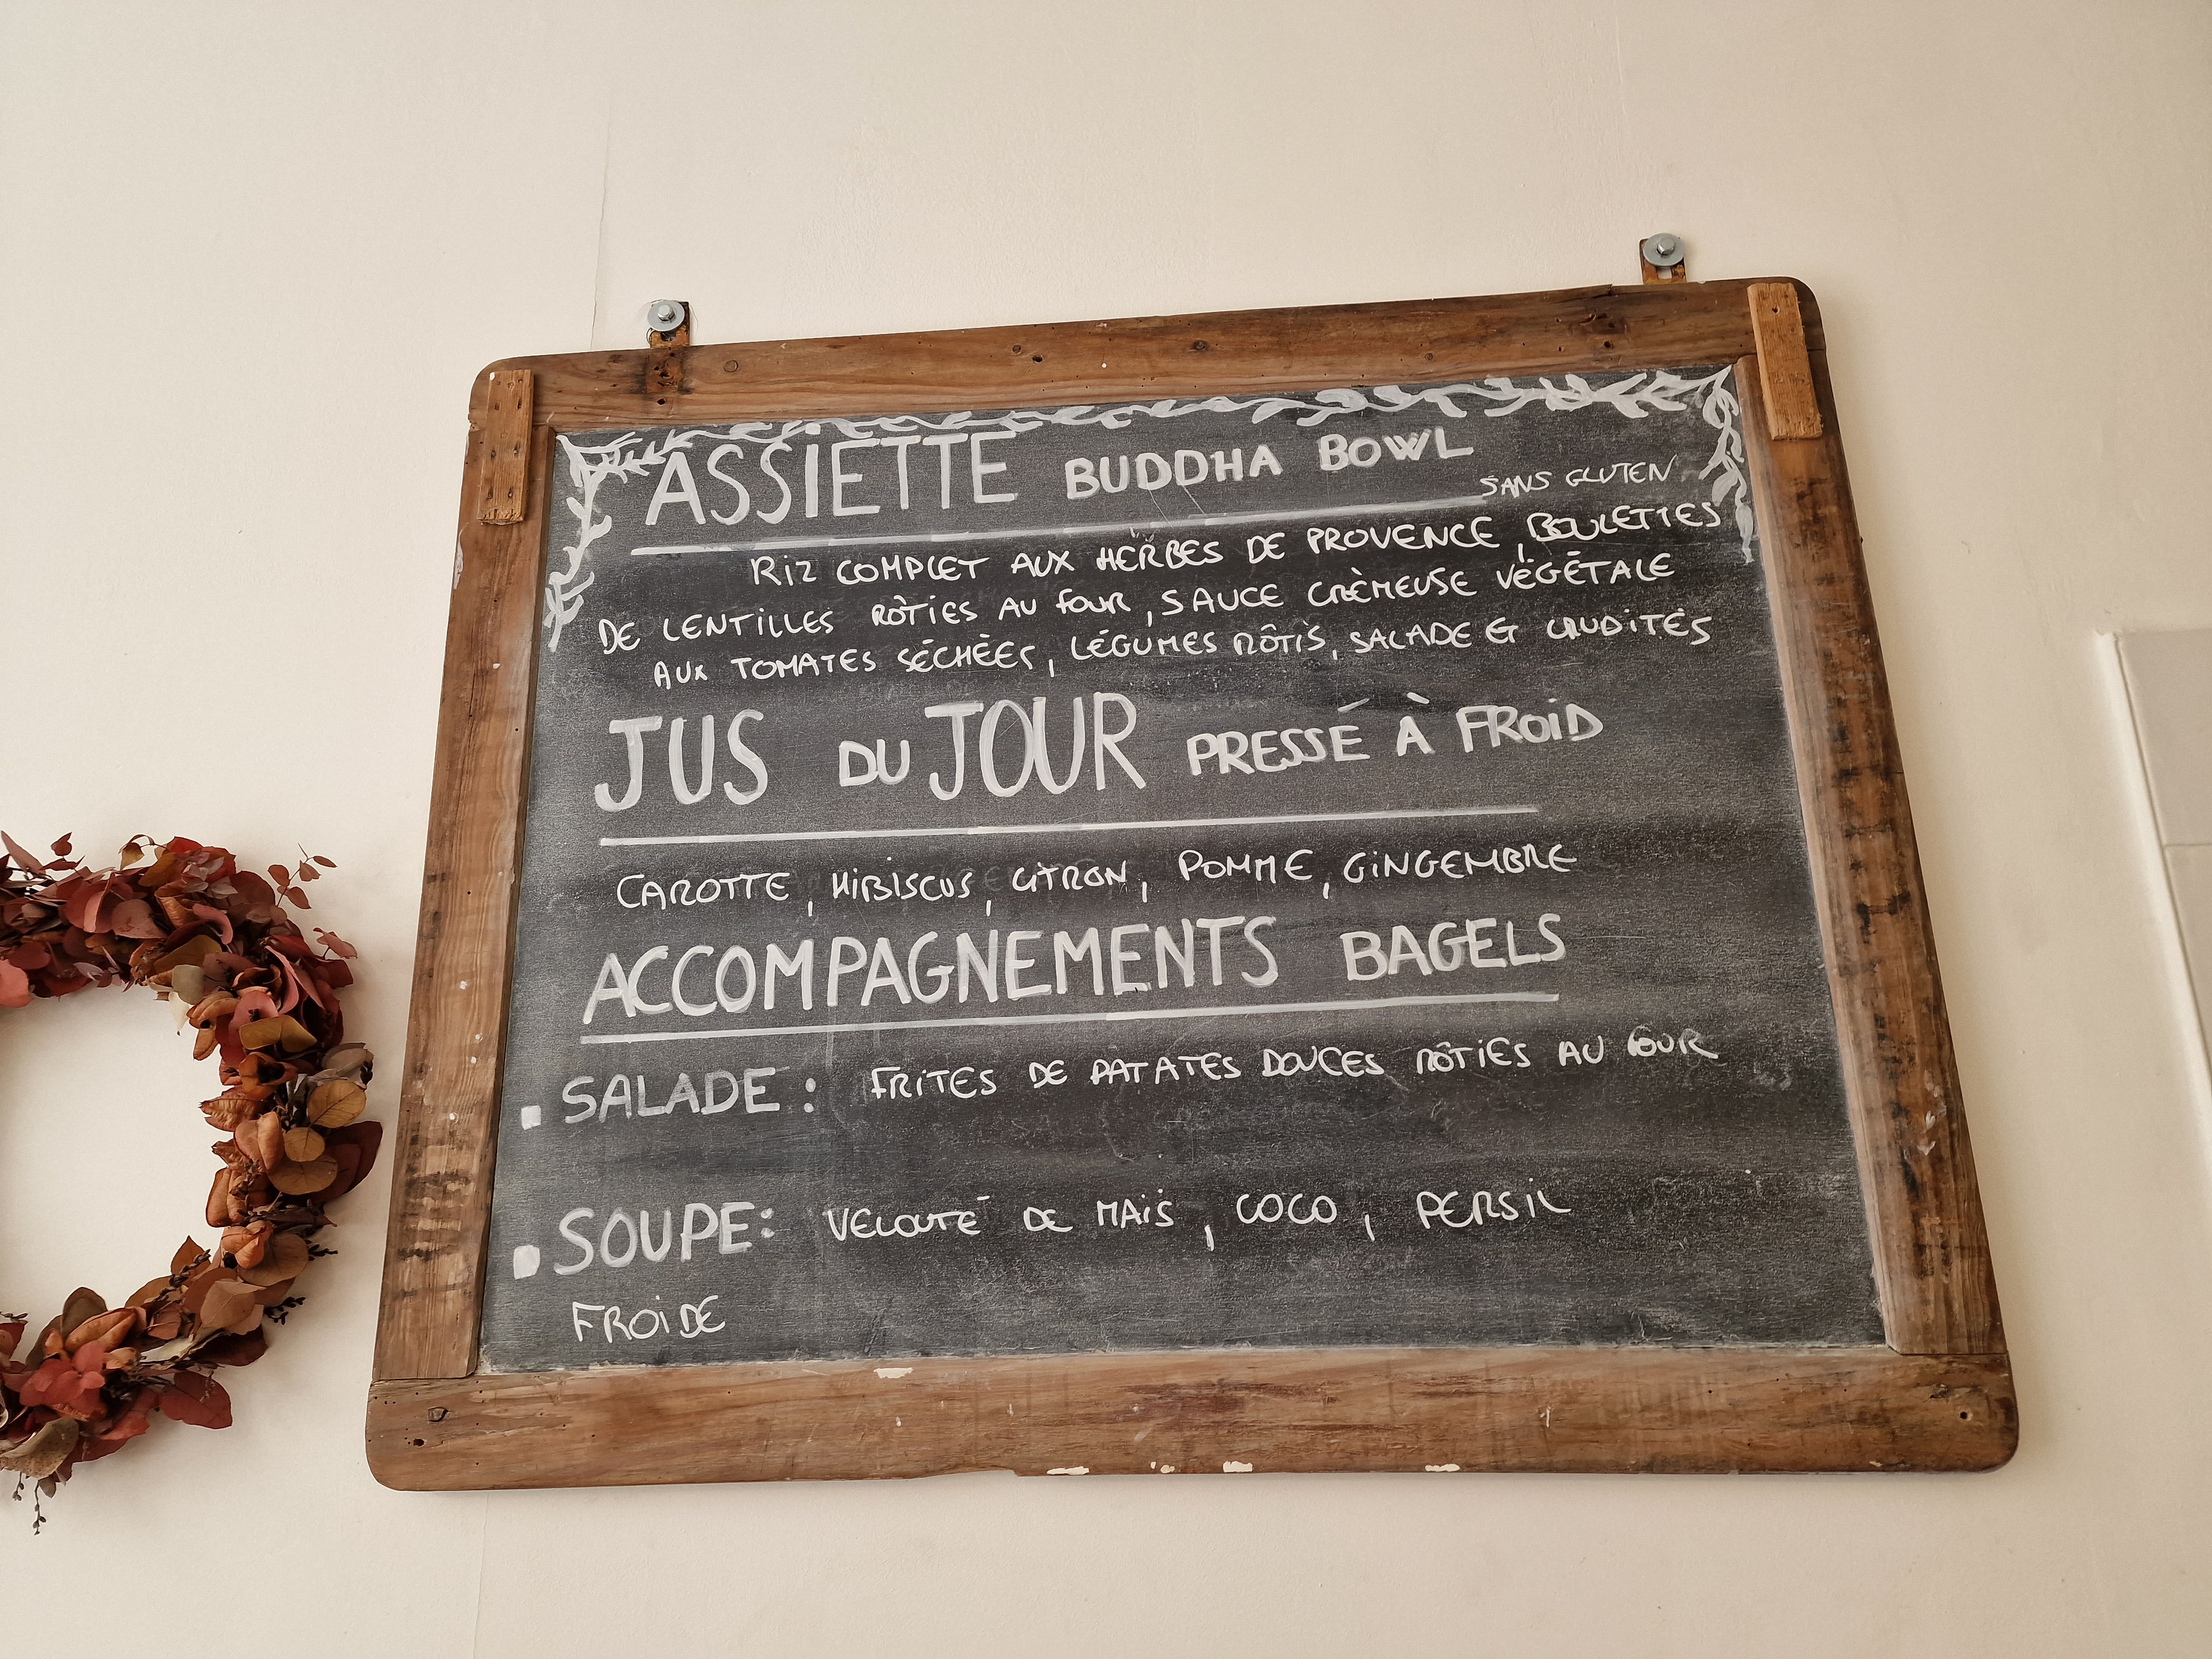 ASSIETTE BUDDHA BOWL
SANS GLUTEN
RIZ COMPLET AUX HERBES DE PROVENCE, BOULETTES
DE LENTILLES RÔTIES AU FOUR, SAUCE CRÈMEUSE VÉGÉTALE
AUX TOMATES SÉCHÉES, LÉGUMES RÔTIS, SALADE ET CRUDITÉS
JUS DU JOUR PRESSÉ À FROID
CAROTTE, HIBISCUS, CITRON, POMME, GINGEMBRE
ACCOMPAGNEMENTS BAGELS
▪ SALADE : FRITES DE PATATES DOUCES RÔTIES AU FOUR
▪ SOUPE : VELOUTÉ DE MAÏS, COCO, PERSIL
FROIDE